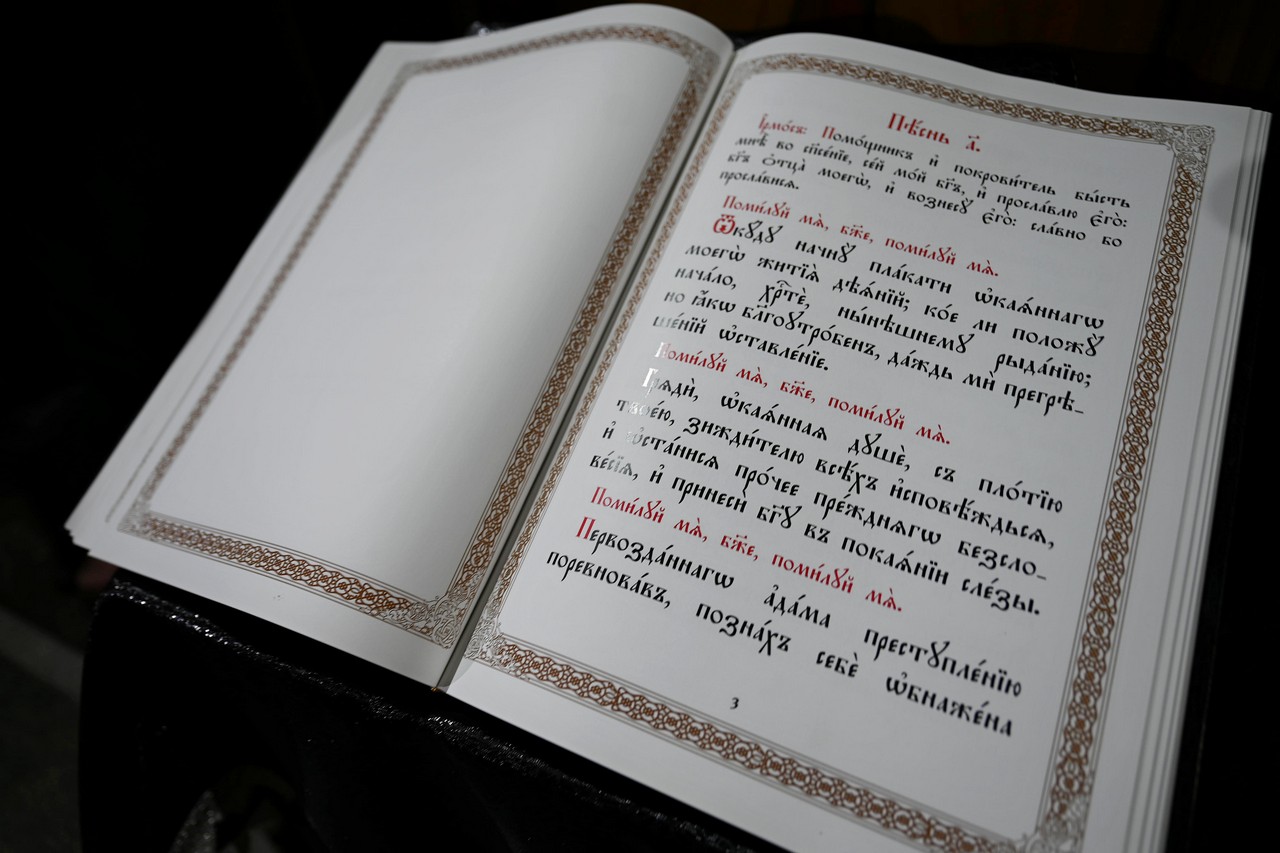 Пѣ́снь а҃.
І҆рмо́съ: Помо́щникъ и҆ покрови́тель бы́сть
мнѣ̀ во сп҃се́нїе, се́й мо́й бг҃ъ, и҆ просла́влю є҆го̀:
бг҃ъ ѻ҆тца̀ моегѡ̀, и҆ вознесꙋ̀ є҆го̀: сла́вно бо
просла́висѧ.
Поми́лꙋй мѧ̀, бж҃е, поми́лꙋй мѧ̀.
Ѿкꙋ́дꙋ начнꙋ̀ пла́кати ѡ҆каѧ́ннагѡ
моегѡ̀ житїѧ̀ дѣѧ́нїй; ко́е ли положꙋ̀
нача́ло, хрⷭ҇тѐ, ны́нѣшнемꙋ рыда́нїю;
но ꙗ҆́кѡ бл҃гоꙋтро́бенъ, да́ждь мѝ прегрѣ-
ше́нїй ѡ҆ставле́нїе.
Поми́лꙋй мѧ̀, бж҃е, поми́лꙋй мѧ̀.
Грѧдѝ, ѡ҆каѧ́ннаѧ дꙋшѐ, съ пло́тїю
твое́ю, зижди́телю всѣ́хъ и҆сповѣ́ждьсѧ,
и҆ ѡ҆ста́нисѧ про́чее пре́ждняѡ безсло-
ве́сїѧ, и҆ принесѝ бг҃ꙋ въ покаѧ́нїи сле́зы.
Поми́лꙋй мѧ̀, бж҃е, поми́лꙋй мѧ̀.
Первозда́ннагѡ а҆да́ма престꙋпле́нїю
поревнова́въ, позна́хъ себѐ ѡ҆бнаже́на
3